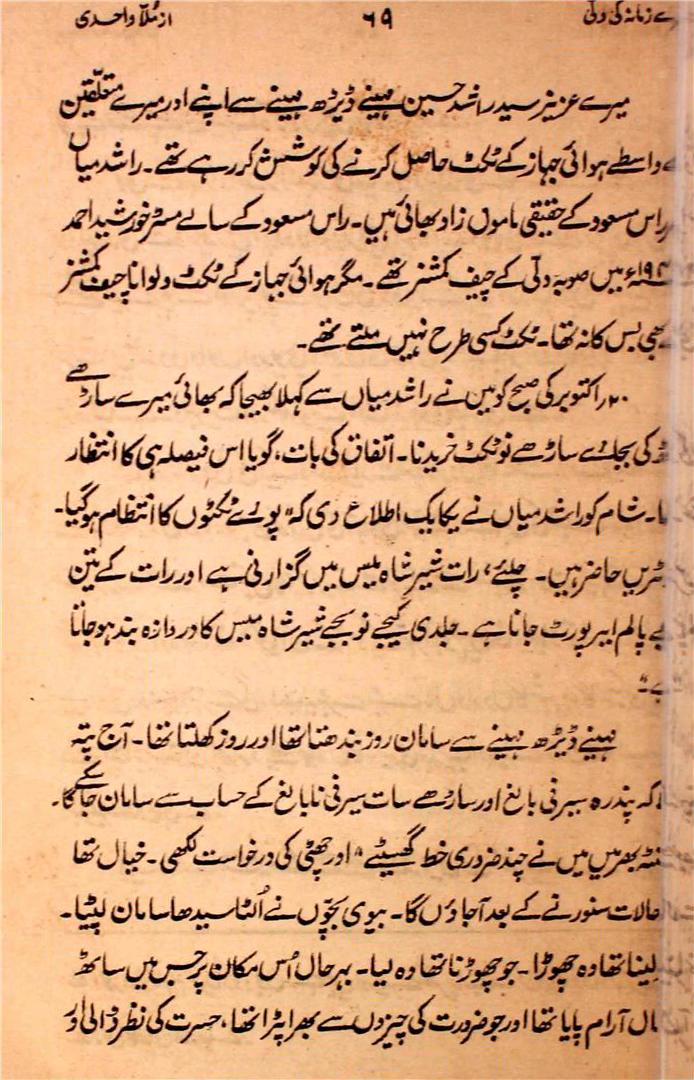 ے زمانہ کی دلی ۶۹ از مُلّا واحدی
میرے عزیز سید راشد حسین مہینے ڈیڑھ مہینے سے اپنے اور میرے متعلّقین
واسطے ہوائی جہاز کے ٹکٹ حاصل کرنے کی کوشش کر رہے تھے۔ راشد میاں
راس مسعود کے حقیقی ماموں زاد بھائی ہیں۔ راس مسعود کے سالے مسٹر خورشید احمد
میں صوبہ دلّی کے چیف کمشنر تھے۔ مگر ہوائی جہاز کے ٹکٹ دلوانا چیف کمشنر
بھی بس کا نہ تھا۔ ٹکٹ کسی طرح نہیں ملتے تھے۔
۲۰ر اکتوبر کی صبح کو میں نے راشد میاں سے کہلا بھیجا کہ بھائی میرے ساڑھے
کی بجائے ساڑھے نو ٹکٹ خریدنا۔ اتفاق کی بات، گویا اس فیصلہ ہی کا انتظار
ا۔ شام کو راشد میاں نے یکایک اطلاع دی کہ "پورے ٹکٹوں کا انتظام ہو گیا۔
ٹریں حاضر ہیں۔ چلئے، رات شیر شاہ میس میں گزارنی ہے اور رات کے تین
بے پالم ایرپورٹ جانا ہے۔ جلدی کیجے نو بجے شیر شاہ میس کا دروازہ بند ہو جاتا
ہے"
مہینے ڈیڑھ مہینے سے سامان روز بندھتا تھا اور روز کھلتا تھا۔ آج پتہ
کہ پندرہ سیر فی بالغ اور ساڑھے سات سیر فی نابالغ کے حساب سے سامان جا سکے گا۔
گھنٹہ بھر میں میں نے چند ضروری خط گھسیٹے، اور چھٹی کی درخواست لکھی۔ خیال تھا
حالات سنورنے کے بعد آجاؤں گا۔ بیوی بچّوں نے اُلٹا سیدھا سامان لپیٹا۔
لینا تھا وہ چھوڑا۔ جو چھوڑنا تھا وہ لیا۔ بہرحال اُس مکان پر جس میں ساٹھ
ال آرام پایا تھا اور جو ضرورت کی چیزوں سے بھرا پڑا تھا، حسرت کی نظر ڈالی اور